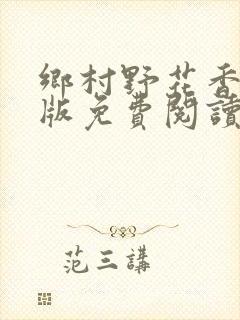 鄉村野花香
版免費閱讀
范三講